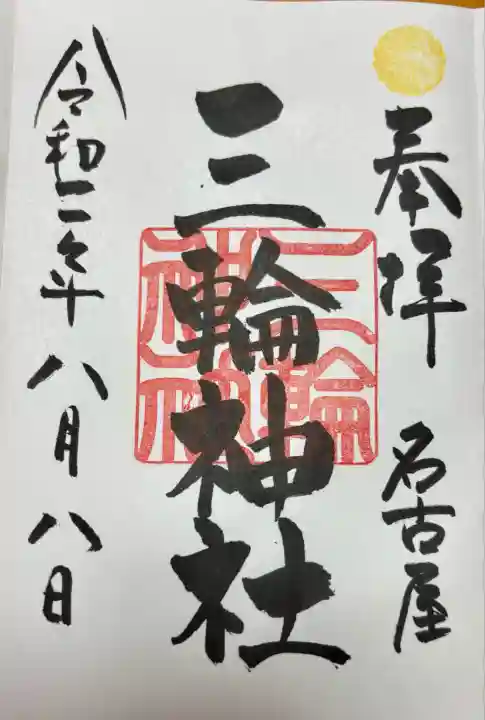 奉拝 名古屋
三輪神社
令和二年八月八日
三輪神社